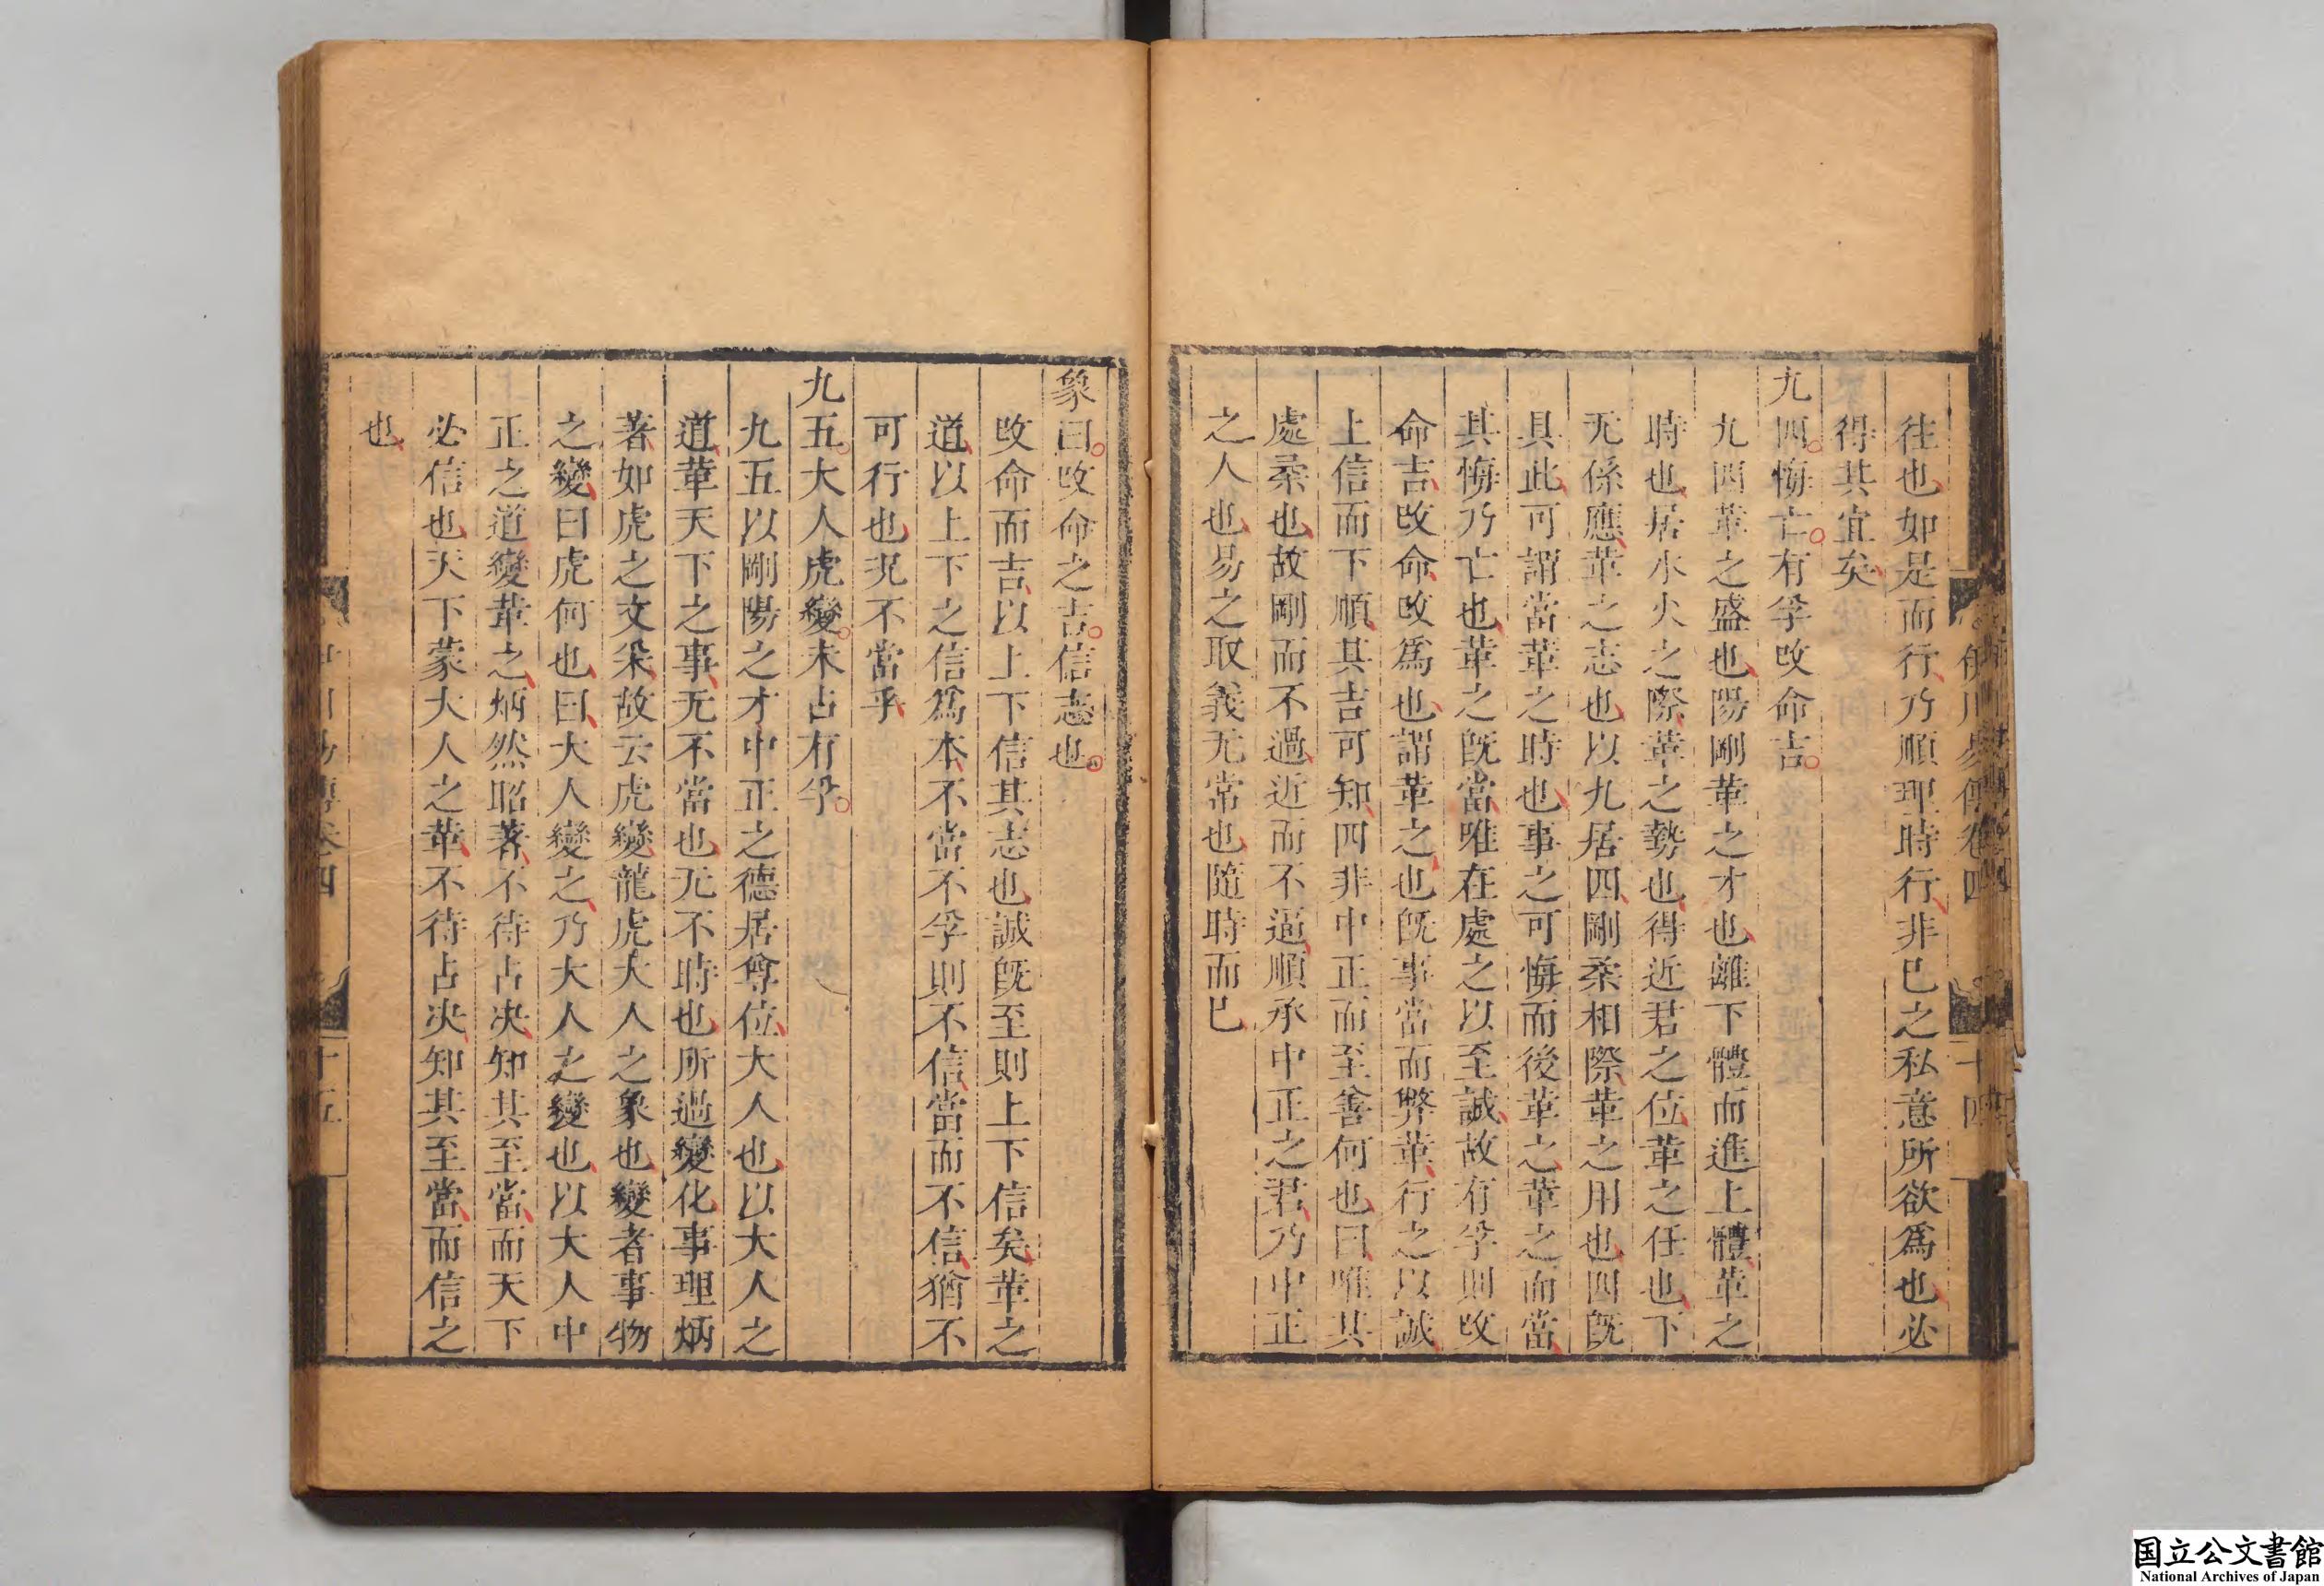 伊川易傳卷四
十四
往也如是而行乃順理時行非已之私意所欲爲也必
得其宜矣
九四悔亡有孚改命吉
九四革之盛也陽剛革之才也離下體而進上體革之
時也居水火之際革之勢也得近君之位革之任也下
无係應革之志也以九居四剛柔相際革之用也四旣
具此可謂當革之時也事之可悔而後革之革之而當
其悔乃亡也革之旣當唯在處之以至誠故有孚則改
命吉改命改爲也謂革之也旣事當而弊革行之以誠
上信而下順其吉可知四非中正而至善何也曰唯其
處柔也故剛而不過近而不逼順承中正之君乃中正
之人也易之取義无常也隨時而已
象曰改命之吉信志也
改命而吉以上下信其志也誠旣至則上下信矣革之
道以上下之信爲本不當不孚則不信當而不信猶不
可行也况不當乎
九五大人虎變未占有孚
九五以剛陽之才中正之德居尊位大人也以大人之
道革天下之事无不當也无不時也所過變化事理炳
著如虎之文采故云虎變龍虎大人之象也變者事物
之變曰虎何也曰大人變之乃大人之變也以大人中
正之道變革之炳然昭著不待占决知其至當而天下
必信也天下蒙大人之革不待占决知其至當而信之
也
伊川易傳卷四
十五
国立公文書館
National Archives of Japan